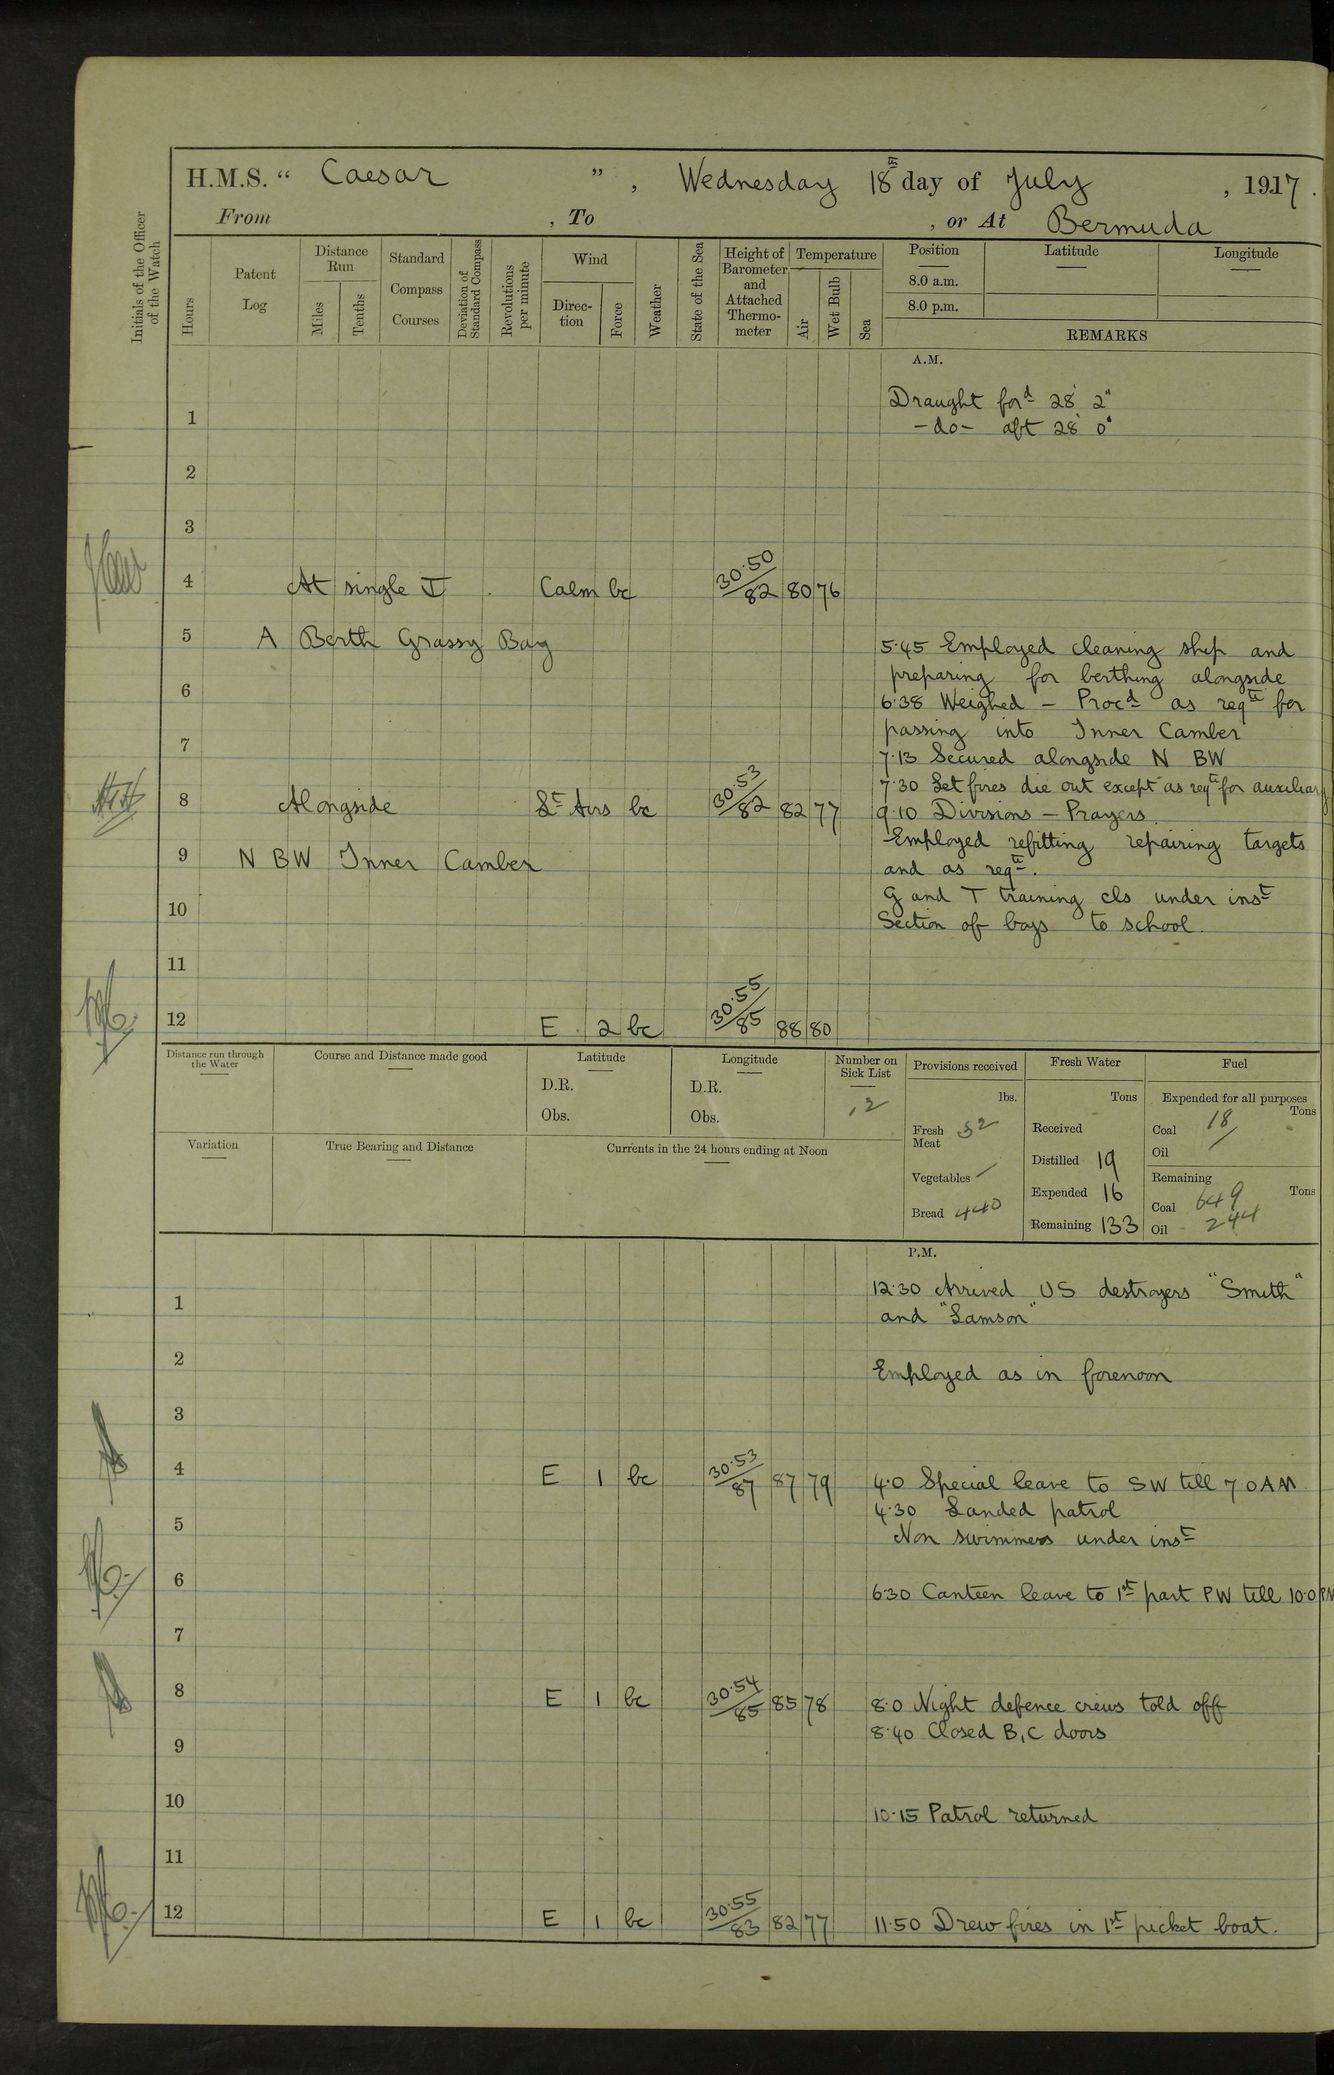 H.M.S. “ Caesar ” , Wednesday 18th day of July , 1917 .
From , To , or At Bermuda
Initials of the Officer of the Watch
Hours
Patent Log
Distance Run
Miles
Tenths
Standard Compass Courses
Deviation of Standard Compass
Revolutions per minute
Wind
Direc-tion
Force
Weather
State of the Sea
Height of Barometer and Attached Thermo-meter
Temperature
Air
Wet Bulb
Sea
Position
8.0 a.m.
8.0 p.m.
Latitude
Longitude
REMARKS
A.M.
Draught ford 28' 2"
1
-do- aft 28' 0"
2
3
4 At single Calm bc 30.50/82 80 76
5 A Berth Grassy Bay
5.45 Employed cleaning ship and
preparing for berthing alongside
6
6.38 Weighed – Procd as reqte for
passing into Inner Camber
7
7.13 Secured alongside N BW
7.30 Let fires die out except as reqte for auxiliary
8 Alongside Lt Airs bc 30.53/82 82 77
9.10 Divisions – Prayers.
Employed refitting repairing targets
9 N BW Inner Camber
and as reqte.
G and T training cls under inst
10
Section of boys to school.
11
12 E 2 bc 30.55/85 88 80
Distance run through the Water
Course and Distance made good
Latitude
D.R.
Obs.
Longitude
D.R.
Obs.
Number on Sick List
12
Provisions received
lbs.
Fresh Meat 32
Vegetables /
Bread 440
Fresh Water
Tons
Received
Distilled 19
Expended 16
Remaining 133
Fuel
Expended for all purposes
Tons
Coal 18
Oil /
Remaining
Tons
Coal 649
Oil 244
Variation
True Bearing and Distance
Currents in the 24 hours ending at Noon
P.M.
12.30 Arrived US destroyers "Smith"
1
and "Lamson"
2
Employed as in forenoon
3
4 E 1 bc 30.53/87 87 79 4.0 Special leave to SW till 7.0 AM
4.30 Landed patrol
5
Non swimmers under inst
6
6.30 Canteen leave to 1st part PW till 10.0 PM
7
8 E 1 bc 30.54/85 85 78 8.0 Night defence crews told off
8.40 Closed B, C doors
9
10
10.15 Patrol returned
11
12 E 1 bc 30.55/83 82 77 11.50 Drew fires in 1st picket boat.